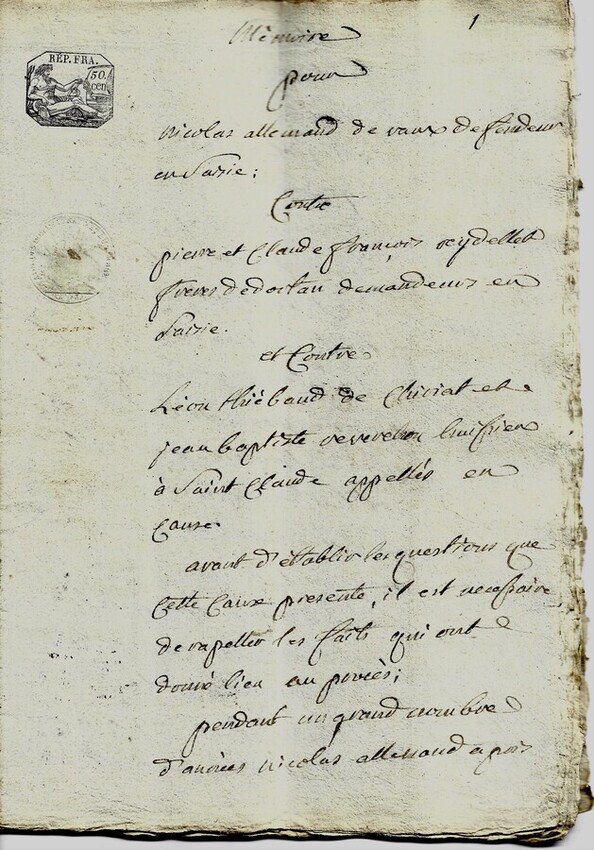 1
Mémoire
RÉP. FRA.
50.
cen
pour
nicolas allemand de vaux defendeur
en Saisie;
Contre
pierre et Claude françois reydellet
freres dedortan demandeurs en
Saisie.
et Contre
Léon thiébaud de Chiriat et
jean baptiste reverchon huissier
à Saint Claude appellés en
Cause.
avant d'établir les questions que
Cette Cause presente, il est necessaire
de rapeller les faits qui ont
donné lieu au procès;
pendant un grand nombre
d'années nicolas allemand a pris